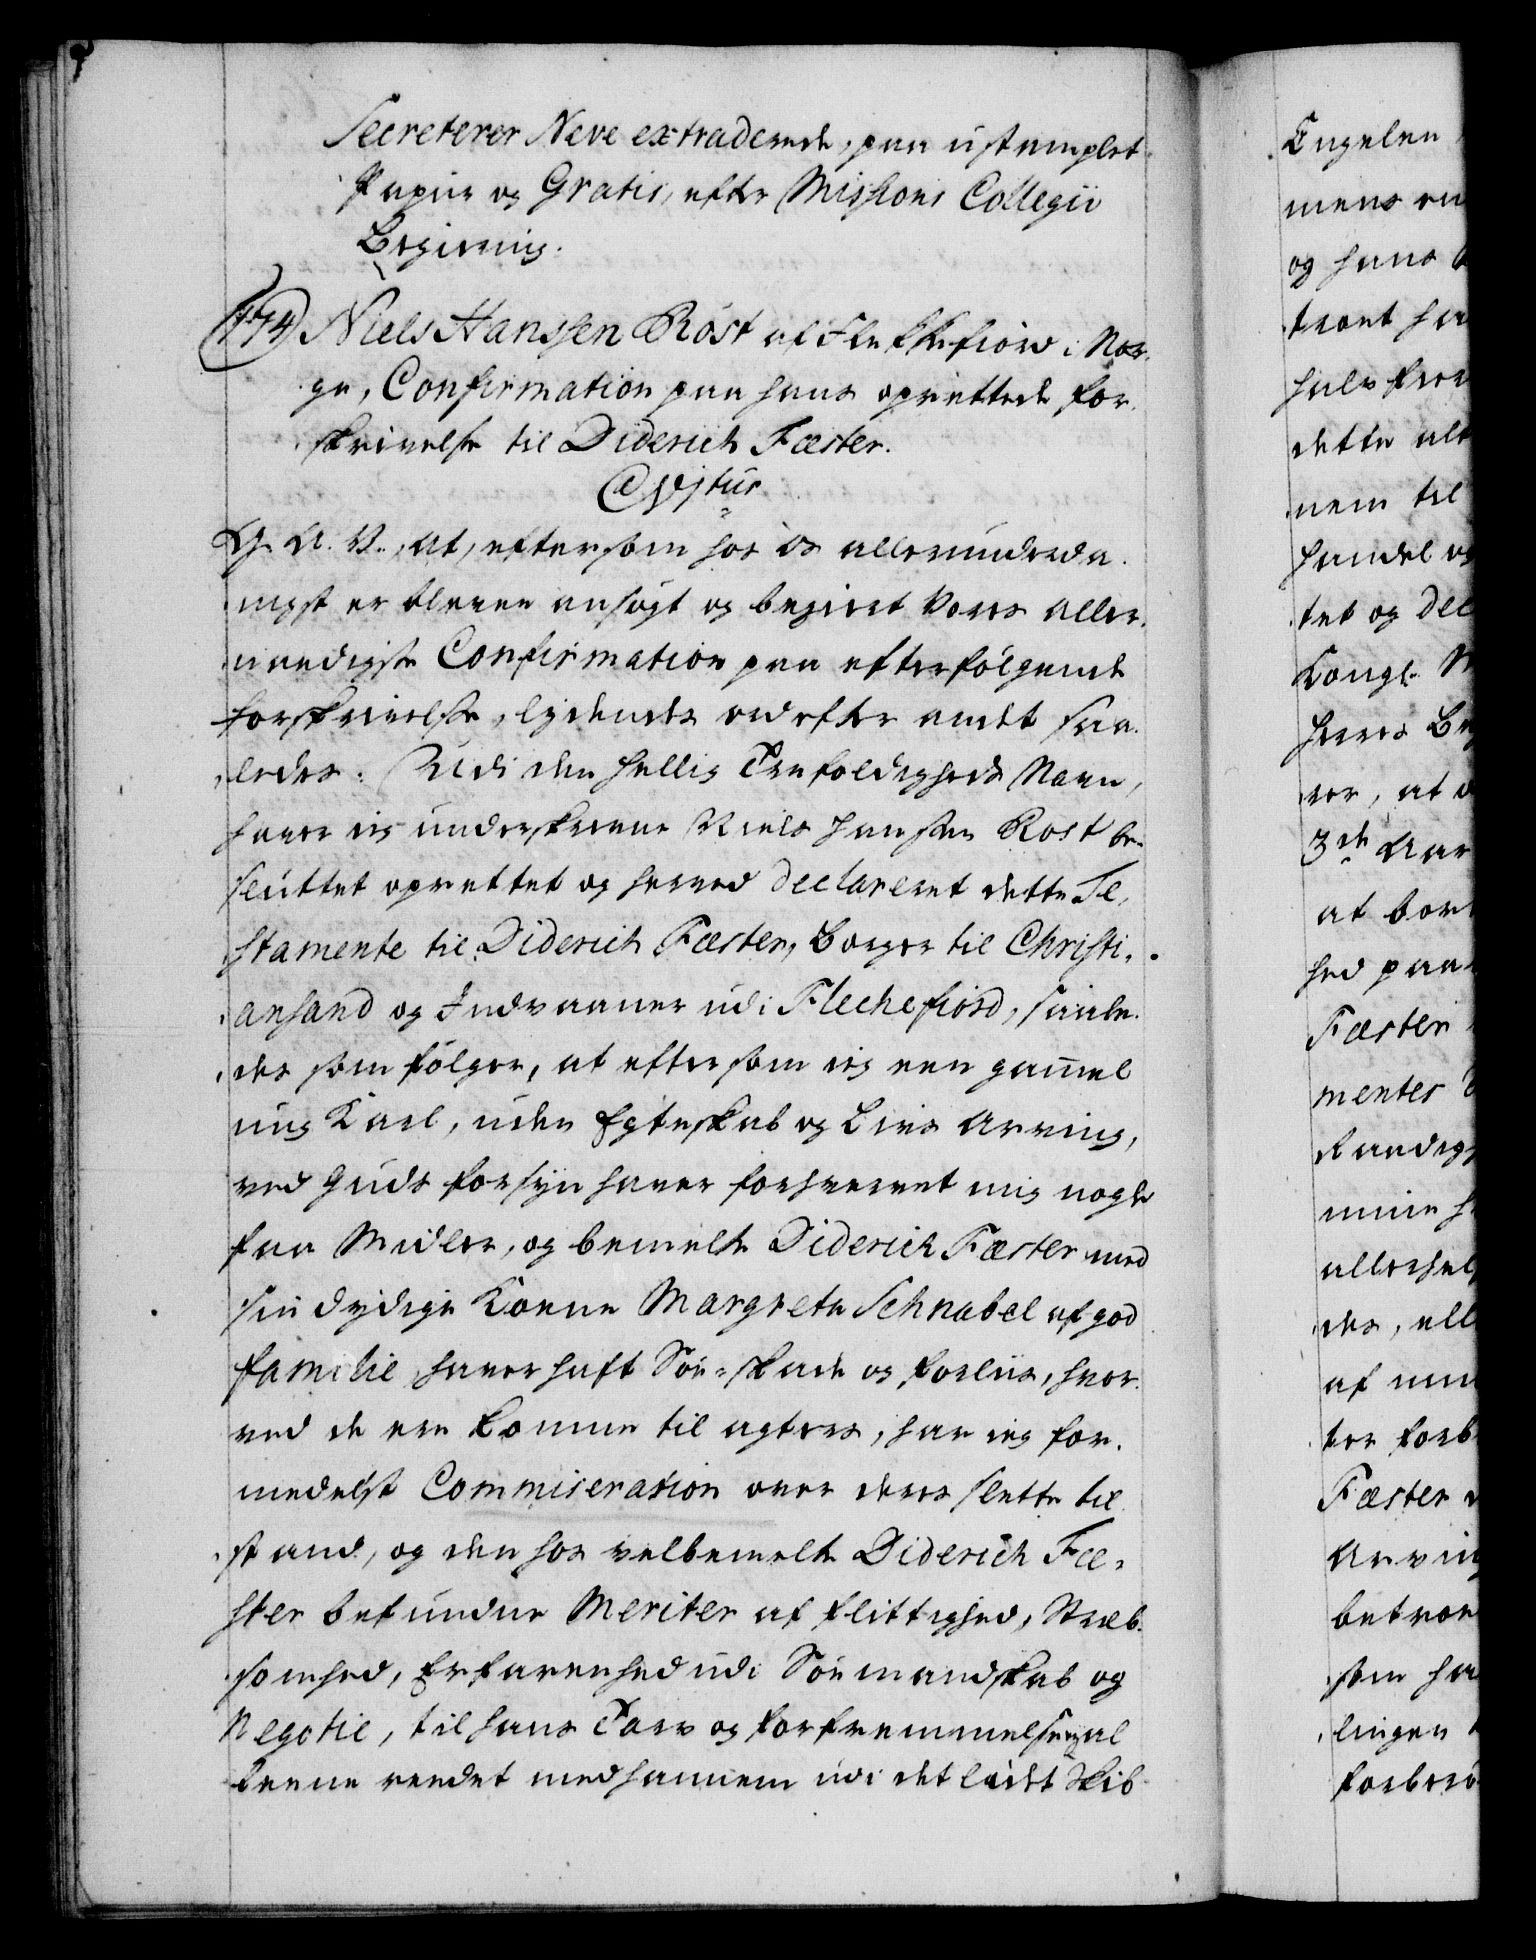 Secreterer Neve extraderede, paa ustemplet
Papiir og Gratis, efter Missions Collegii
Begiering.
174) Niels Hanssen Röst af Flekkefiord i Nor-
ge, Confirmation paa hans oprettede for-
skrivelse til Diderich Fæster.
C VI tus
G. A. V., at, eftersom hos os allerunderda-
nigst er bleven ansøgt og begiert Vores aller-
naadigste Confirmation paa efterfølgende
forskrivelse, lydende ord efter andet saa-
ledes: Udi den hellig Trefoldigheds Navn,
haver ieg underskrevne Niels Hansen Rost be-
sluttet oprettet og herved declareret dette Te-
stamente til Diderich Fæster, Borger til Christi-
ansand og Indvaaner udi Flechefiord, saale-
des som følger, at eftersom ieg een gam̄el
ung Karl, uden Egteskab og Livs Arving,
ved Guds forsyn haver forhvervet mig nogle
faa Midler, og bemelte Diderich Fæster med
sin dydige Kone Margrete Schnabel af god
familie, haver haft Söe-skade og forliis, hvor-
ved de ere komne til agters, har ieg for-
medelst Commiseration over deres slette til-
stand, og den hos velbemelte Diderich Fæ-
ster befundne Meriter af flittighed, Stræb-
somhed, Erfarenhed udi Söemandskab og
Negotie, til hans Tarv og forfremmelse
reedet med hannem udi det Skib